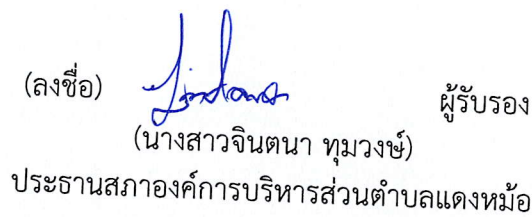 (ลงชื่อ) ผู้รับรอง
(นางสาวจินตนา ทุมวงษ์)
ประธานสภาองค์การบริหารส่วนตำบลแดงหม้อ